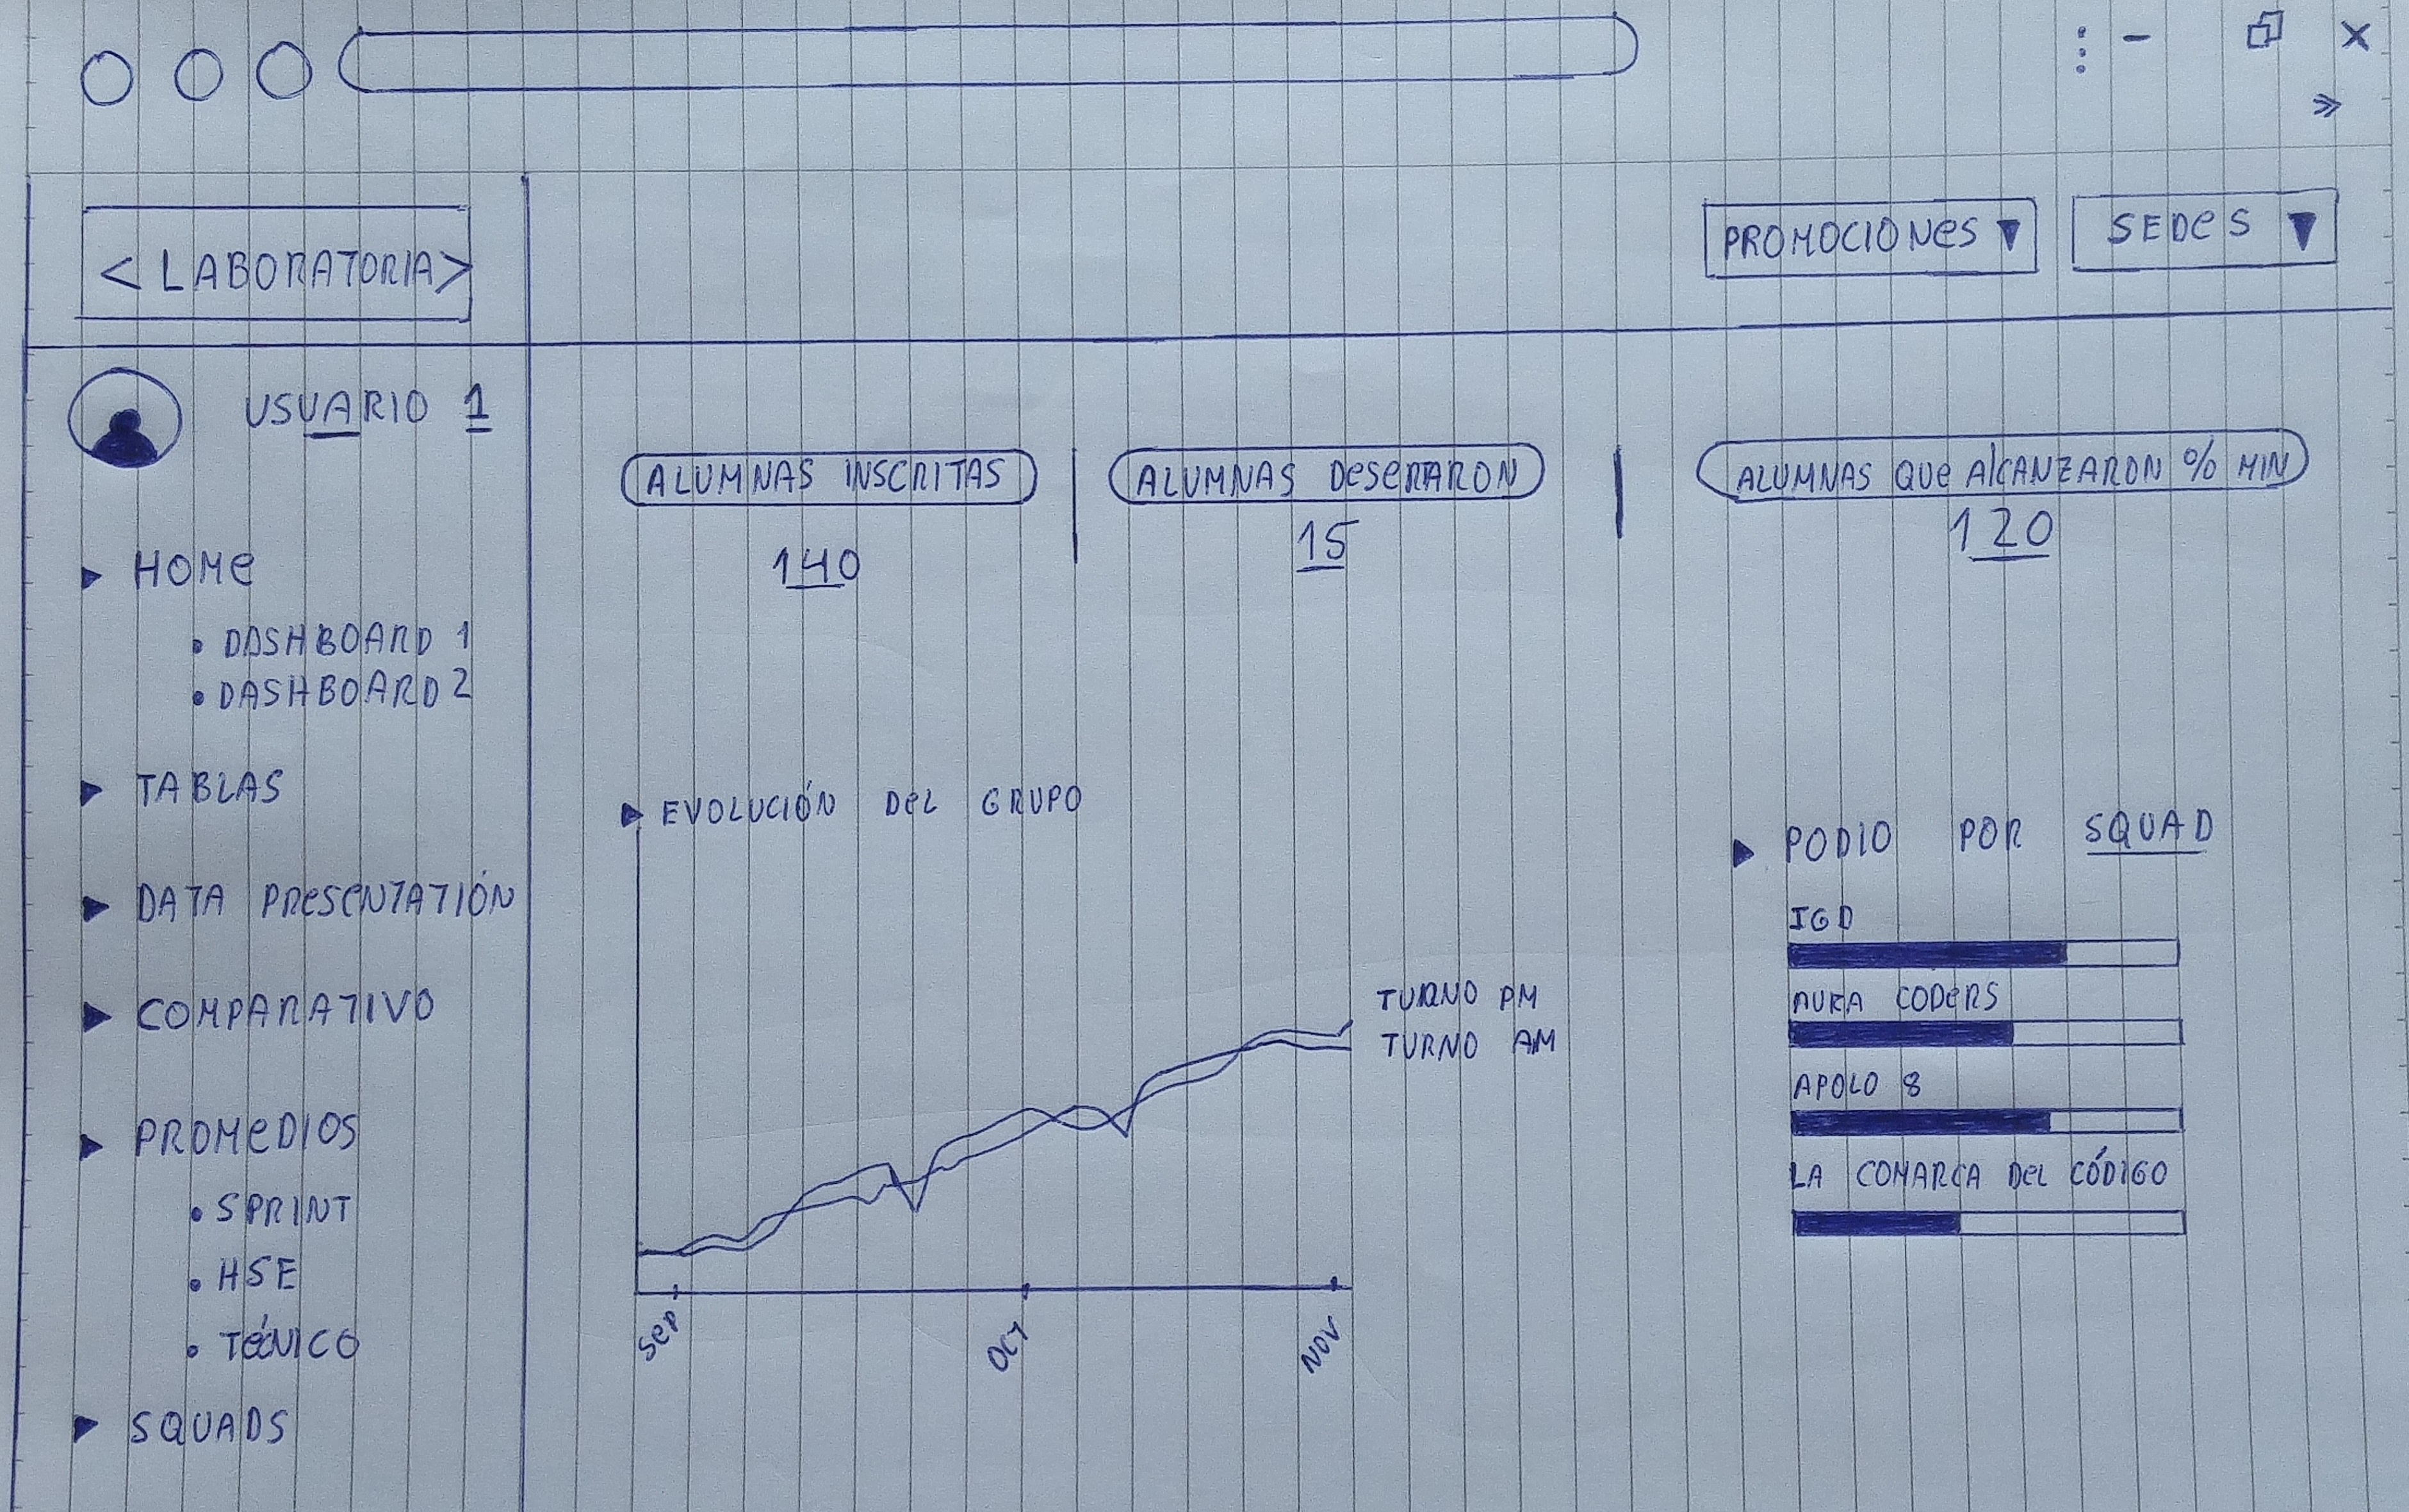 PROMOCIONES
SEDES
<LABORATORIA>
USUARIO 1
HOME
DASHBOARD 1
DASHBOARD 2
TABLAS
DATA PRESENTATIÓN
COMPARATIVO
PROMEDIOS
SPRINT
HSE
TéCNICO
SQUADS
ALUMNAS INSCRITAS
140
ALUMNAS DESERTARON
15
ALUMNAS QUE AlCANZARON % MIN
120
EVOLUCIÓN DEL GRUPO
TURNO PM
TURNO AM
SEP
OCT
NOV
PODIO POR SQUAD
IGD
AURA CODERS
APOLO 8
LA COMARCA DEL CÓDIGO